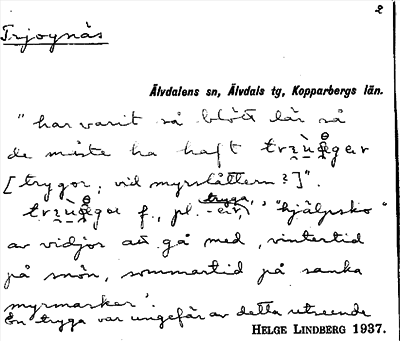 2
Trjoynäs
Älvdalens sn, Älvdals tg, Kopparbergs län.
"har varit så blött där så
de måste ha haft
[trygor, vid myrslåttern?]".
tryga
f., pl. 'hjälpsko'
av vidjor att gå med, vintertid
på snön, sommartid på sanka
myrmarker'.
En tryga var ungefär av detta utseende
HELGE LINDBERG 1937.